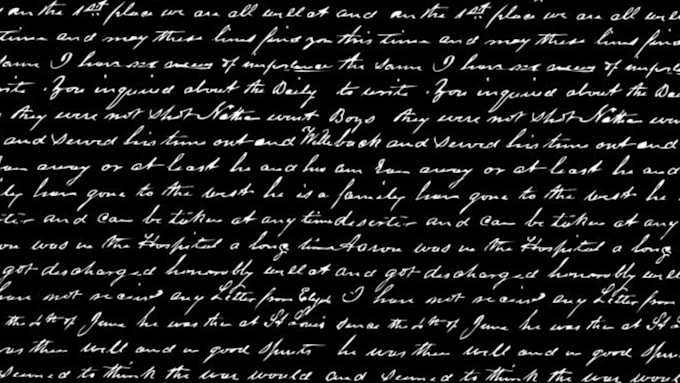 on the 1st place we are all well at and on the 1st place we are all well
times and may these lines find you this times and may these lines find
same I have no news of importance the same I have no news of
write . You inquired about the Daily to write . You inquired about the
they were not shot Nathan went Boys they were not shot Nathan
and served his time out and Willeback and served his time out and
away or at least he and has away or at least he and
have gone to the west he is a family have gone to the west he
and can be taken at any time deserter and can be taken at any
was in the Hospital a long time Aaron was in the Hospital a long
got discharged honorably well at and got discharged honorably well
have not receive any Letter from I have not receive any Letter from
the 4th of June he was then at St Louis since the 4th of June he was then at St
was then well and in good spirits he was then well and in good spirits
seemed to think the war would and seemed to think the war was